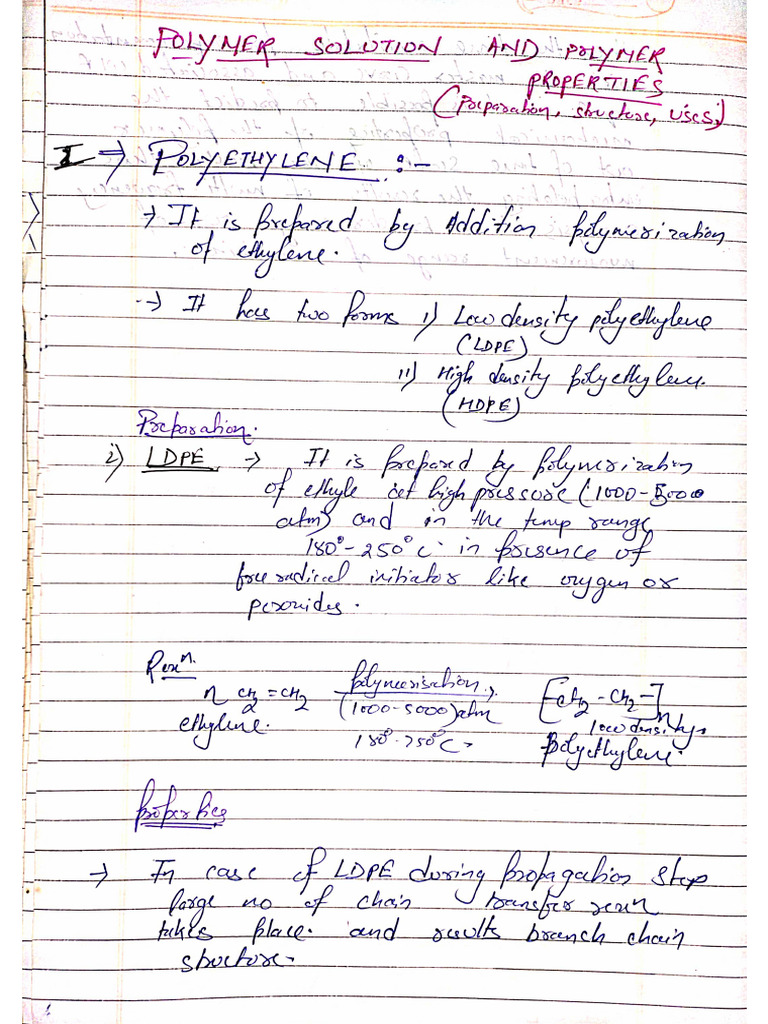 POLYMER SOLUTION AND POLYMER
PROPERTIES
(Preparation, structure, uses,)
I ⇒ POLYETHYLENE :-
→ It is prepared by Addition polymerization
of ethylene.
→ It has two forms i) Low density polyethylene
(LDPE)
ii) High density polyethylene.
(HDPE)
Preparation.
i) LDPE → It is prepared by polymerization
of ethyle at high pressure (1000-5000
atm) and in the temp range
180°-250°C in presence of
free radical initiator like oxygen or
peroxides.
Rexn.
n CH2=CH2 polymerisation, [-CH2-CH2-]n
ethylene. (1000-5000)atm low density
180°-250°C polyethylene.
Properties
→ In case of LDPE during propagation step
large no of chain transfer rexn
takes place. and results branch chain
structure.